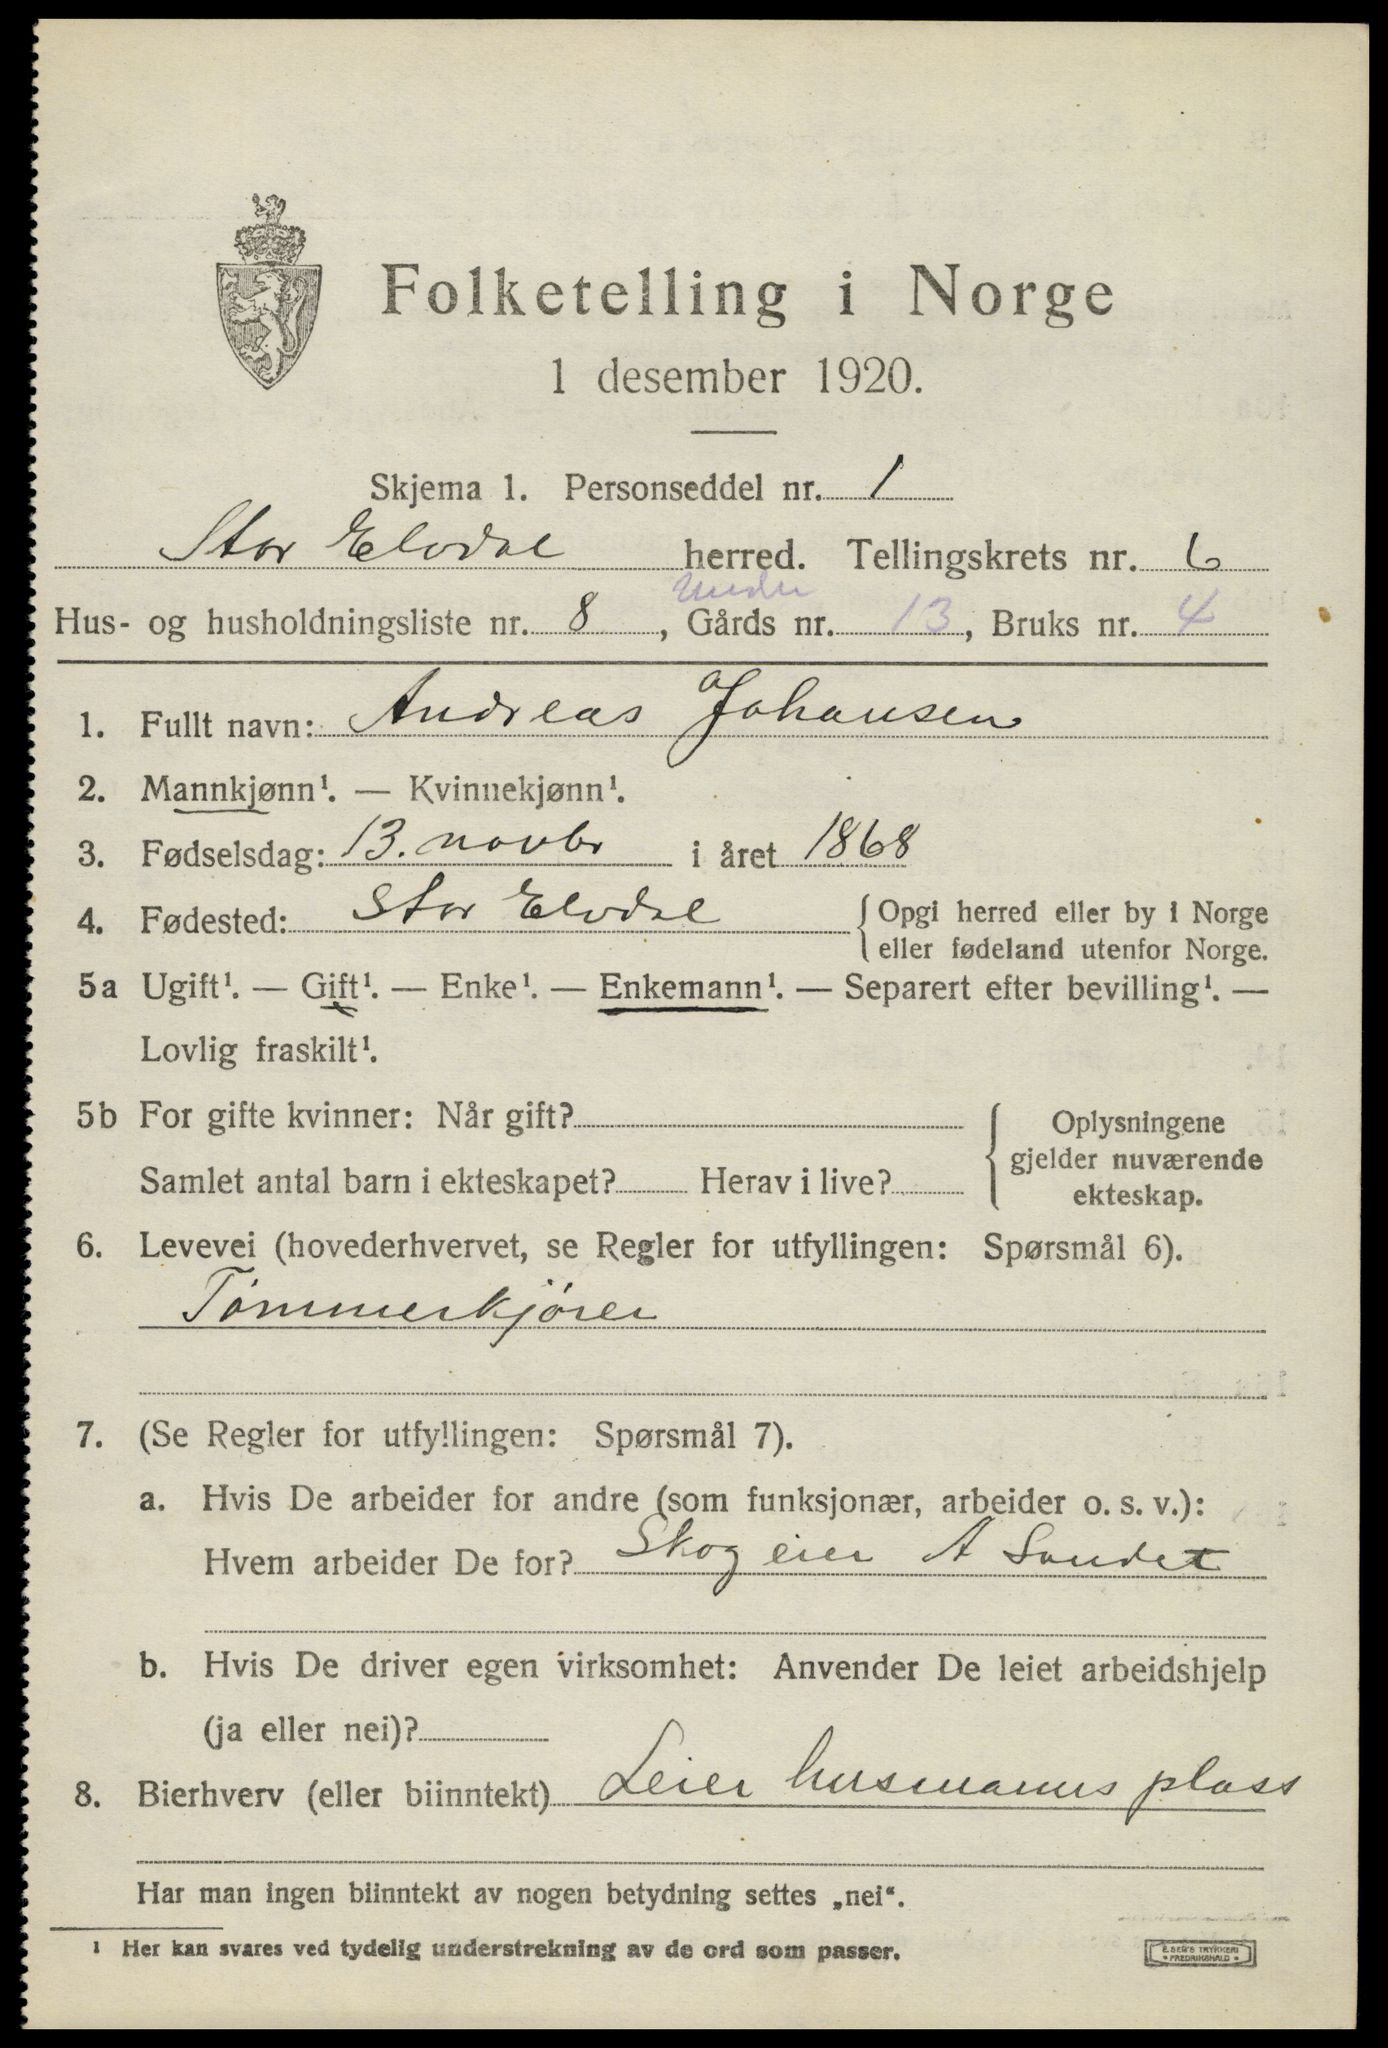 Folketelling i Norge
1 desember 1920.
Skjema 1. Personseddel nr. 1
Stor Elvdal herred. Tellingskrets nr. 6
Under
Hus- og husholdningsliste nr. 8, Gårds nr. 13, Bruks nr. 4
1. Fullt navn: Andreas Johansen
2. Mannkjønn¹. — Kvinnekjønn¹.
3. Fødselsdag: 13. novbr i året 1868
4. Fødested: Stor Elvdal { Opgi herred eller by i Norge
eller fødeland utenfor Norge.
5a Ugift¹. — Gift¹. — Enke¹. — Enkemann¹. — Separert efter bevilling¹. —
Lovlig fraskilt¹.
5b For gifte kvinner: Når gift? { Oplysningene
gjelder nuværende
Samlet antal barn i ekteskapet? Herav i live? ekteskap.
6. Levevei (hovederhvervet, se Regler for utfyllingen: Spørsmål 6).
Tømmerkjører
7. (Se Regler for utfyllingen: Spørsmål 7).
a. Hvis De arbeider for andre (som funksjonær, arbeider o. s. v.):
Hvem arbeider De for? Skog eier A Sundet
b. Hvis De driver egen virksomhet: Anvender De leiet arbeidshjelp
(ja eller nei)?
8. Bierhverv (eller biinntekt) Leier husmanns plass
Har man ingen biinntekt av nogen betydning settes „nei“.
¹ Her kan svares ved tydelig understrekning av de ord som passer.
E. SEM'S TRYKKERI
FREDRIKSHALD